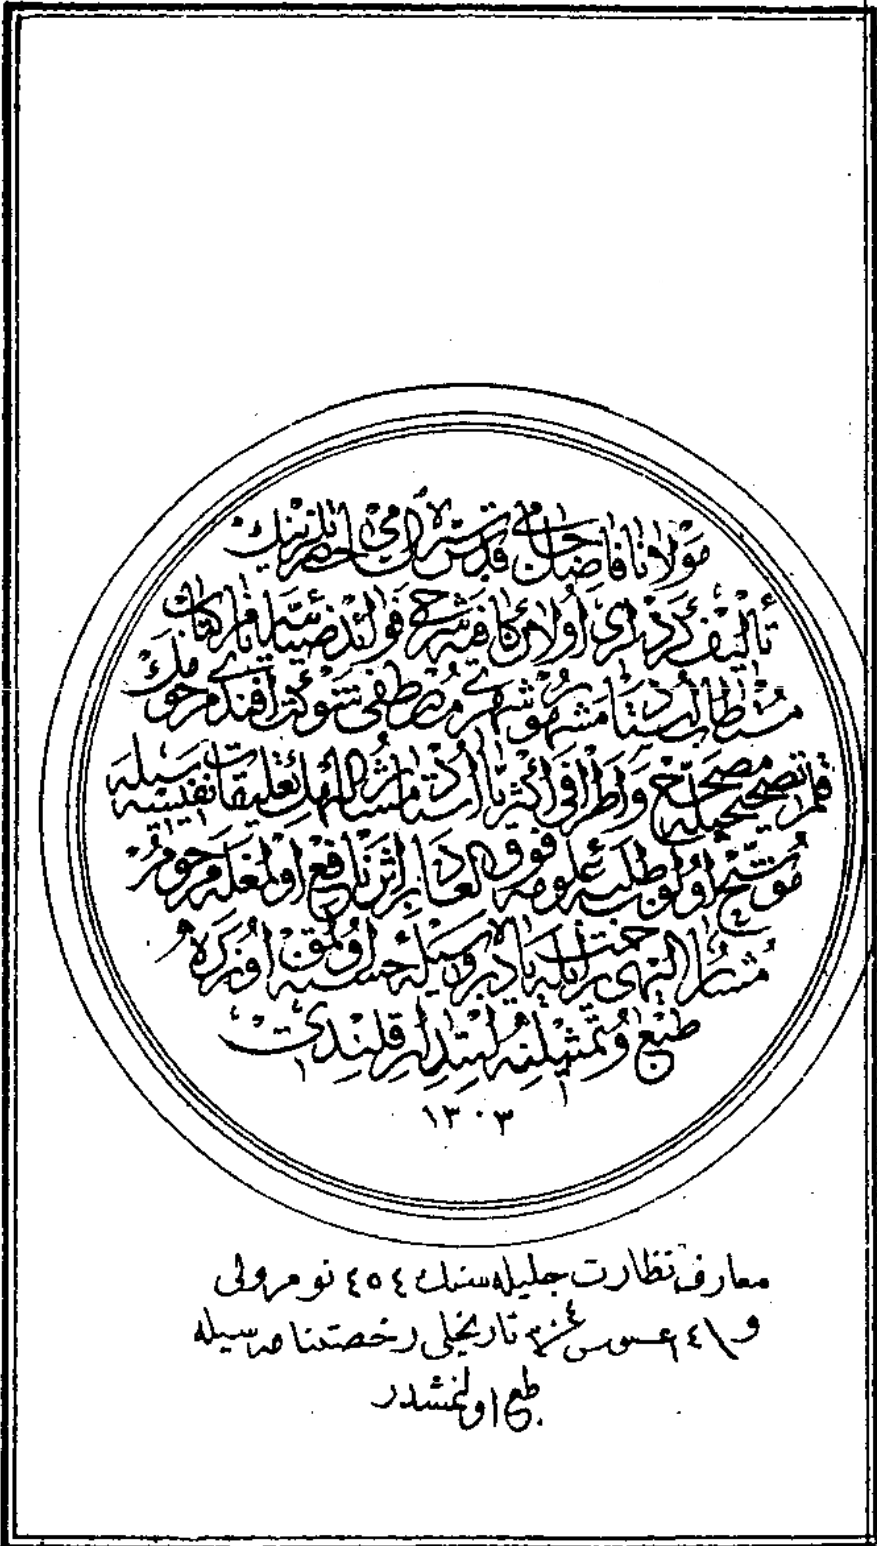 مولانا فاضل جامی قدس سره السامی حضرتلرینك
تألیف کرده لری اولان کافیه شرحی فوائد ضیائیه نام کتاب
مستطاب استاد مشهور شهری مصطفی شوکت افندی مرحومك
قلم تصحیحیله مصحح واطرافی اکثریا استاد مشار الیهك تعلیقات نفیسه سیله
موشح اولوب طلبه علومه فوق العاده بر اثر نافع اولمغله مرحوم
مشار الیهی جنت ایله یاده بر وسیله حسنه اولمق اوزره
طبع وتمثیلنه ابتدار قلندی
١٣٠٣
معارف نظارت جلیله سنك ٤٥٤ نومرولی
و تاریخلی رخصتنامه سیله
طبع اولنمشدر